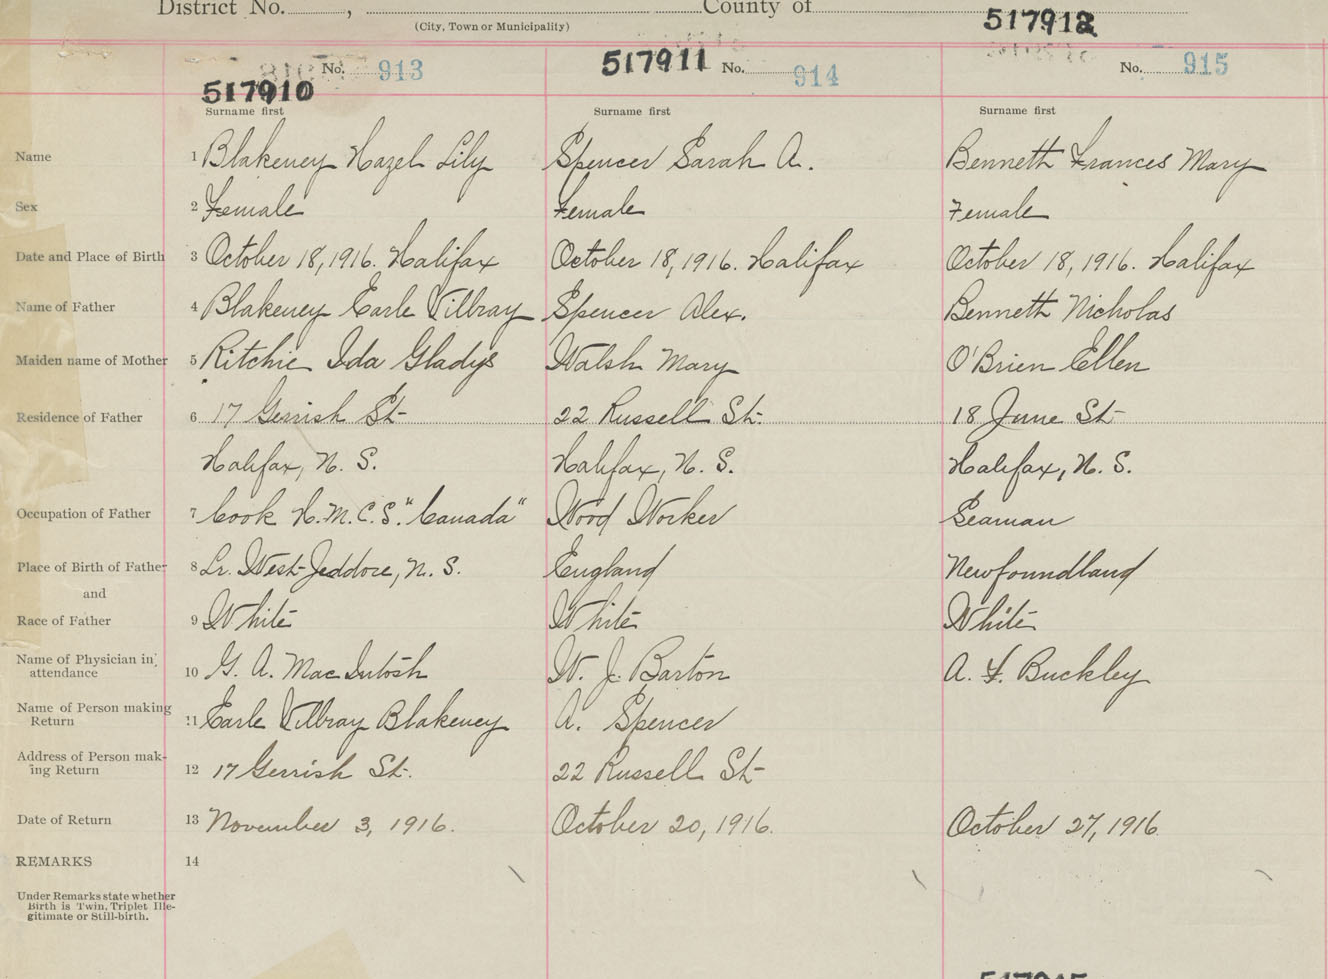 District No. , County of
(City, Town or Municipality)
517912
517911
No. 913
No. 914
No. 915
517910
Surname first Surname first Surname first
Name 1 Blakeney Hazel Lily Spencer Sarah A. Benneth Frances Mary
Sex 2 Female Female Female
Date and Place of Birth 3 October 18, 1916. Halifax October 18, 1916. Halifax October 18, 1916. Halifax
Name of Father 4 Blakeney Earle Vilbray Spencer Alex. Benneth Nicholas
Maiden name of Mother 5 Ritchie Ida Gladys Walsh Mary O'Brien Ellen
Residence of Father 6 17 Gerrish St 22 Russell St. 18 June St
Halifax, N. S. Halifax, N. S. Halifax, N. S.
Occupation of Father 7 Cook H.M.C.S. "Canada" Wood Worker Seaman
Place of Birth of Father 8 Lr. West Jeddore, N. S. England Newfoundland
and
Race of Father 9 White White White
Name of Physician in attendance 10 G. A. MacIntosh W. J. Barton A. F. Buckley
Name of Person making Return 11 Earle Vilbray Blakeney A. Spencer
Address of Person mak-ing Return 12 17 Gerrish St. 22 Russell St
Date of Return 13 November 3, 1916. October 20, 1916. October 27, 1916
REMARKS 14
Under Remarks state whether
Birth is Twin, Triplet Ille-
gitimate or Still-birth.